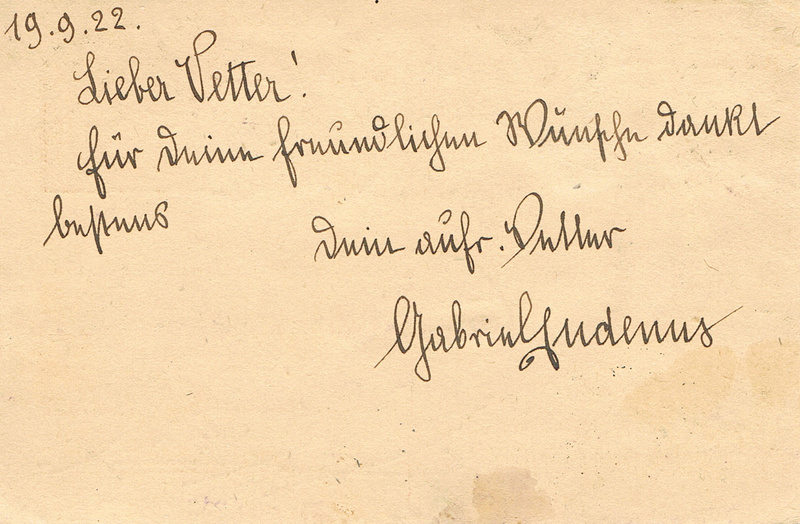 19.9.22.
Lieber Vetter!
Für Deine freundlichen Wünsche dankt
bestens
Dein aufr. Vetter
Gabriel Gudenus